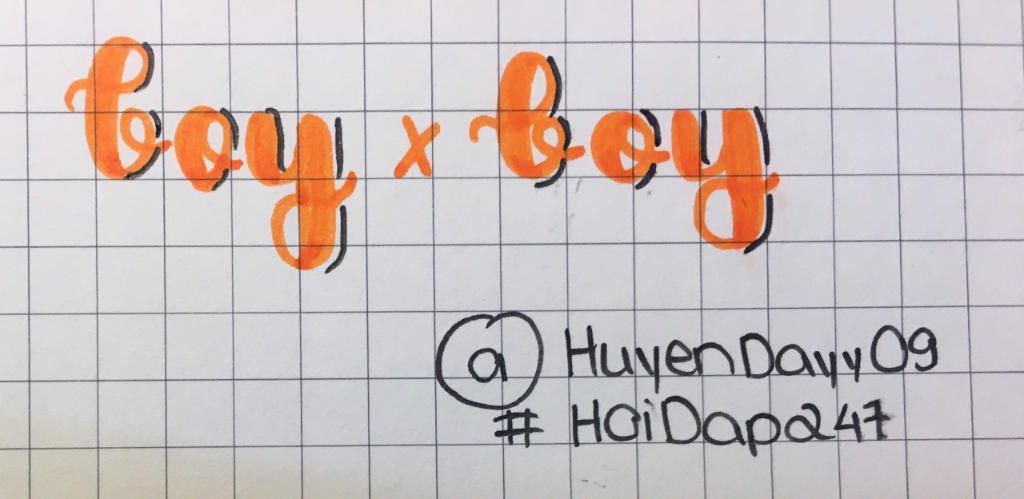 boy x boy
@ HuyenDayy09
# HOiDap247